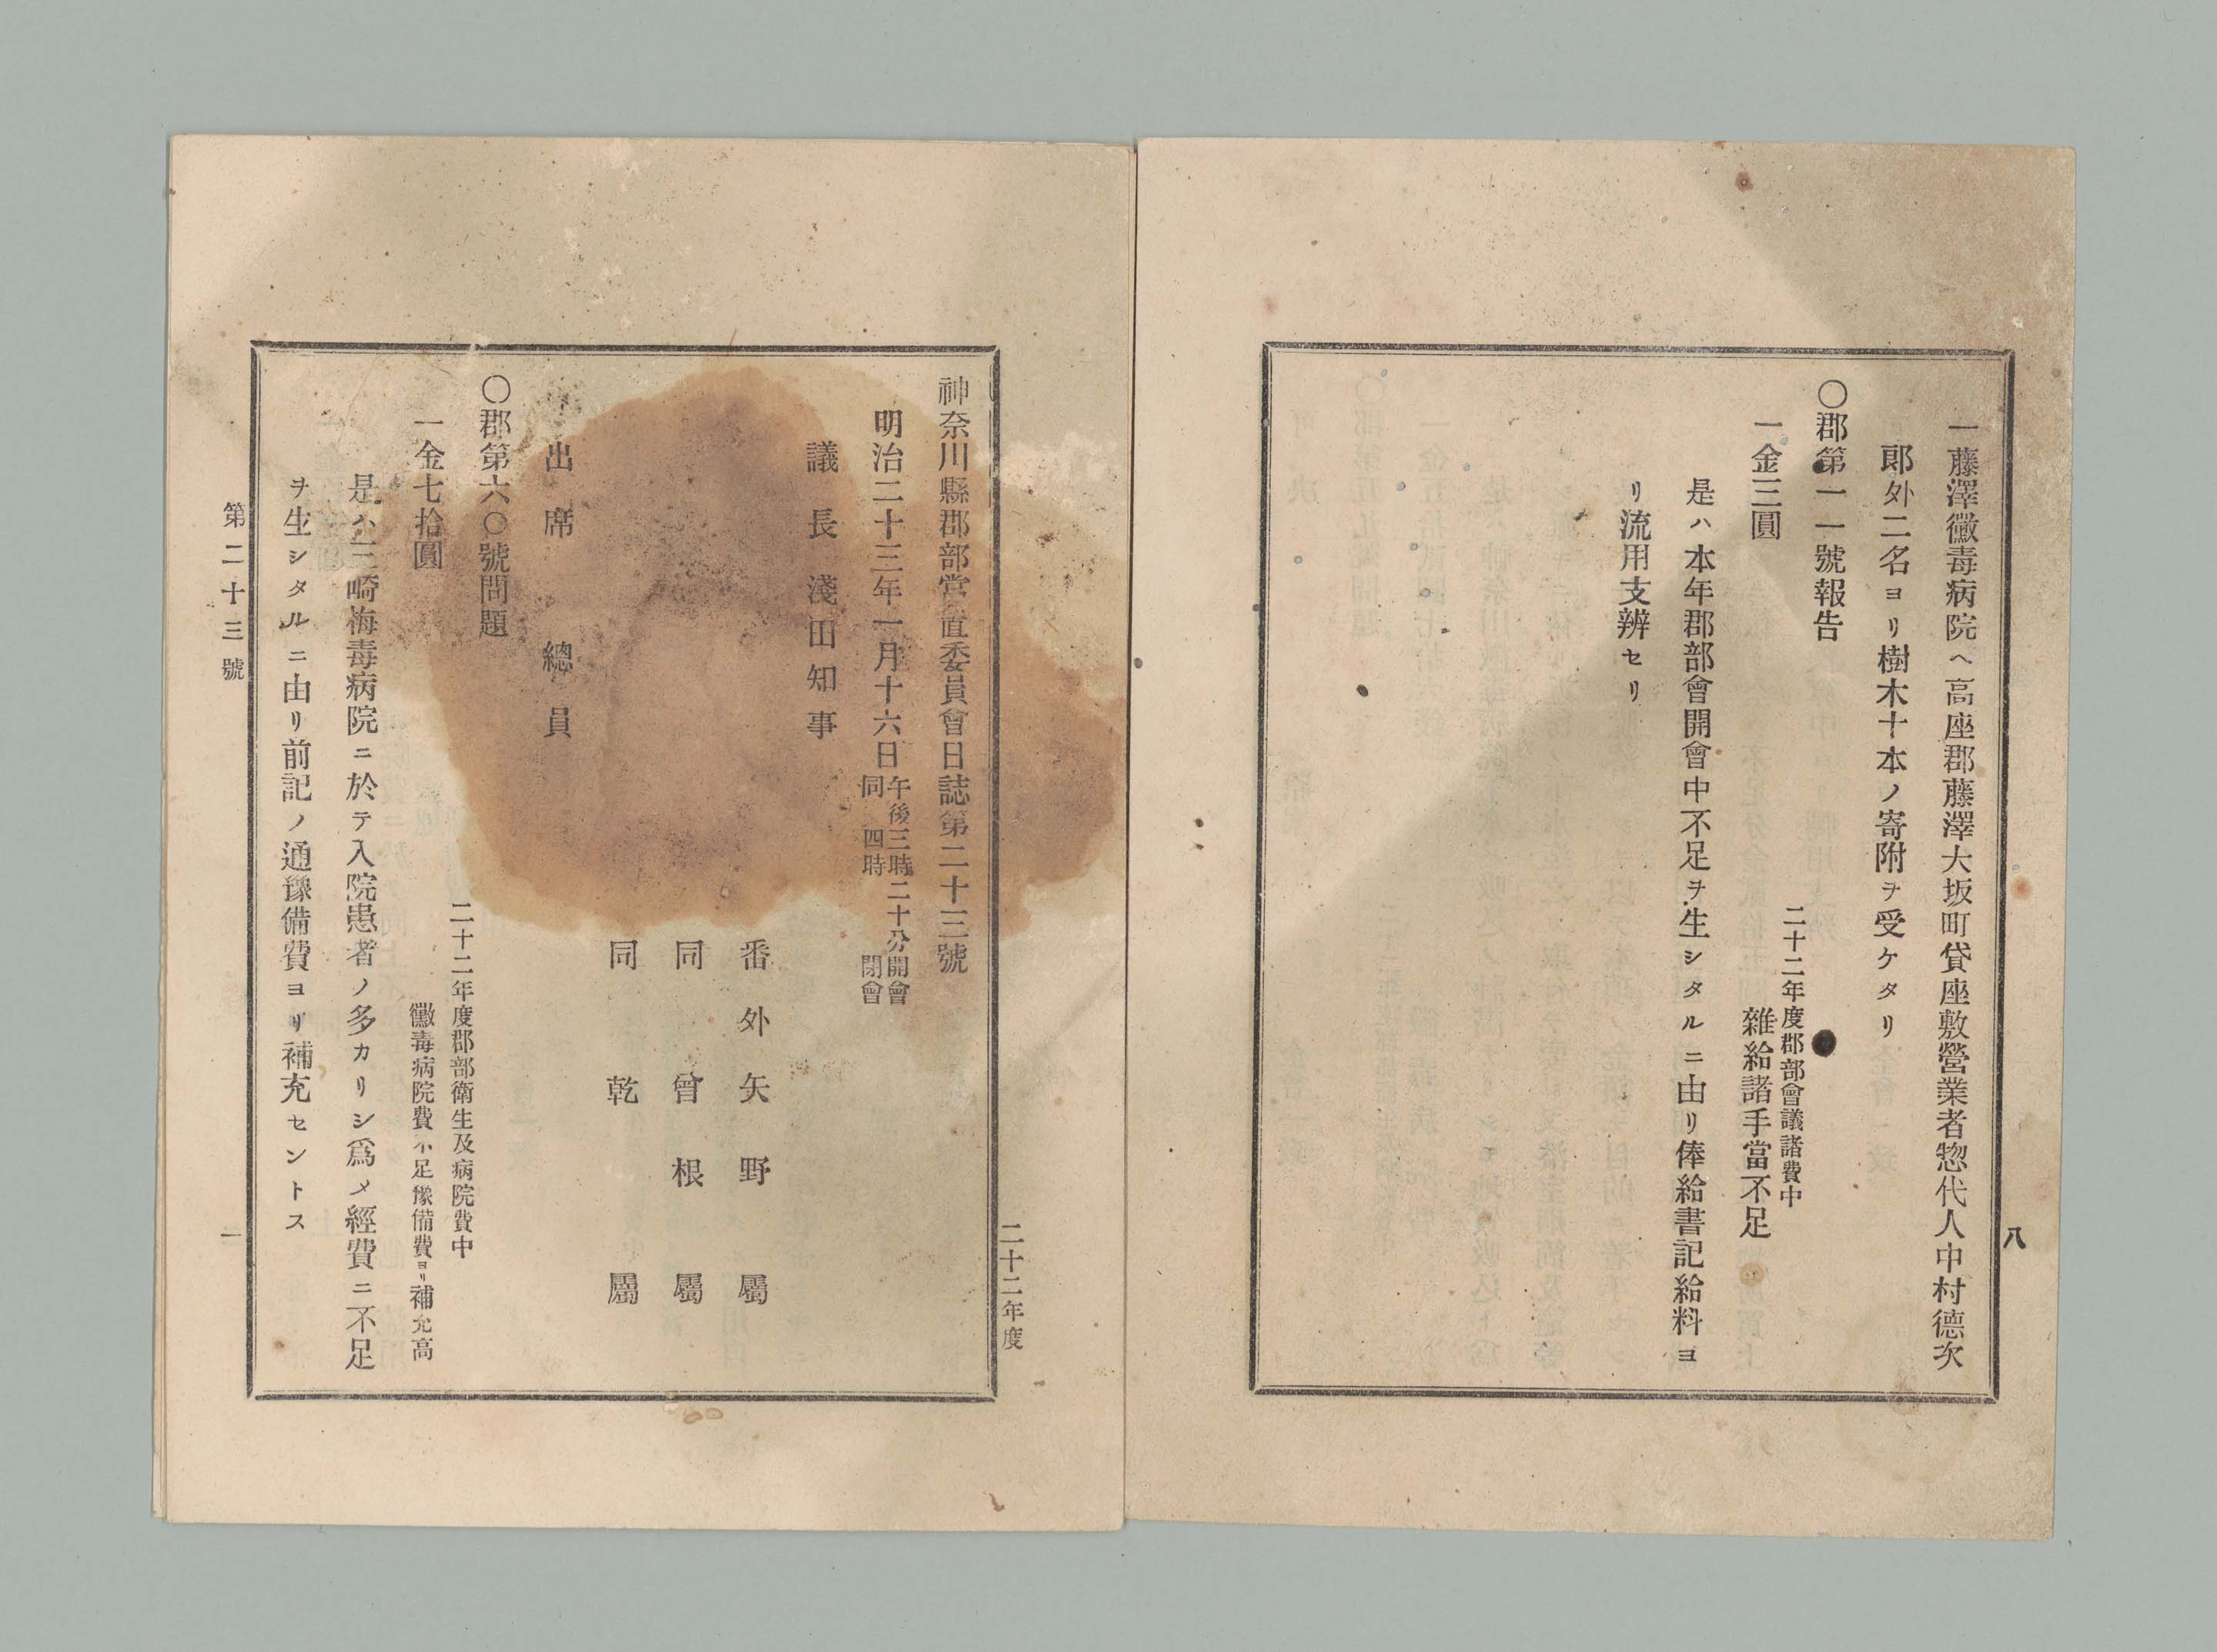 八
一藤澤黴毒病院ヘ高座郡藤澤大坂町貸座敷營業者惣代人中村德次
郞外二名ヨリ樹木十本ノ寄附ヲ受ケタリ
〇郡第一一號報告
一金三圓
二十二年度郡部會議諸費中
雜給諸手當不足
是ハ本年郡部會開會中不足ヲ生シタルニ由リ俸給書記給料ヨ
リ流用支辨セリ
二十二年度
神奈川縣郡部常置委員會日誌第二十三號
明治二十三年一月十六日
午後三時二十分開會
同四時閉會
議長淺田知事
番外矢野屬
同曾根屬
同乾屬
出席總員
〇郡第六〇號問題
一金七拾圓
二十二年度郡部衛生及病院費中
黴毒病院費不足豫備費ヨリ補充高
是ハ三崎梅毒病院ニ於テ入院患者ノ多カリシ爲メ經費ニ不足
ヲ生シタルニ由リ前記ノ通豫備費ヨリ補充セントス
第二十三號
一